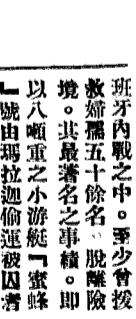 班牙內戰之中。至少曾援
救婦孺五十餘名、脫離險
境。其最著名之事績。即
以八噸重之小游艇『蜜蜂
』號由瑪拉迦偷運被囚者